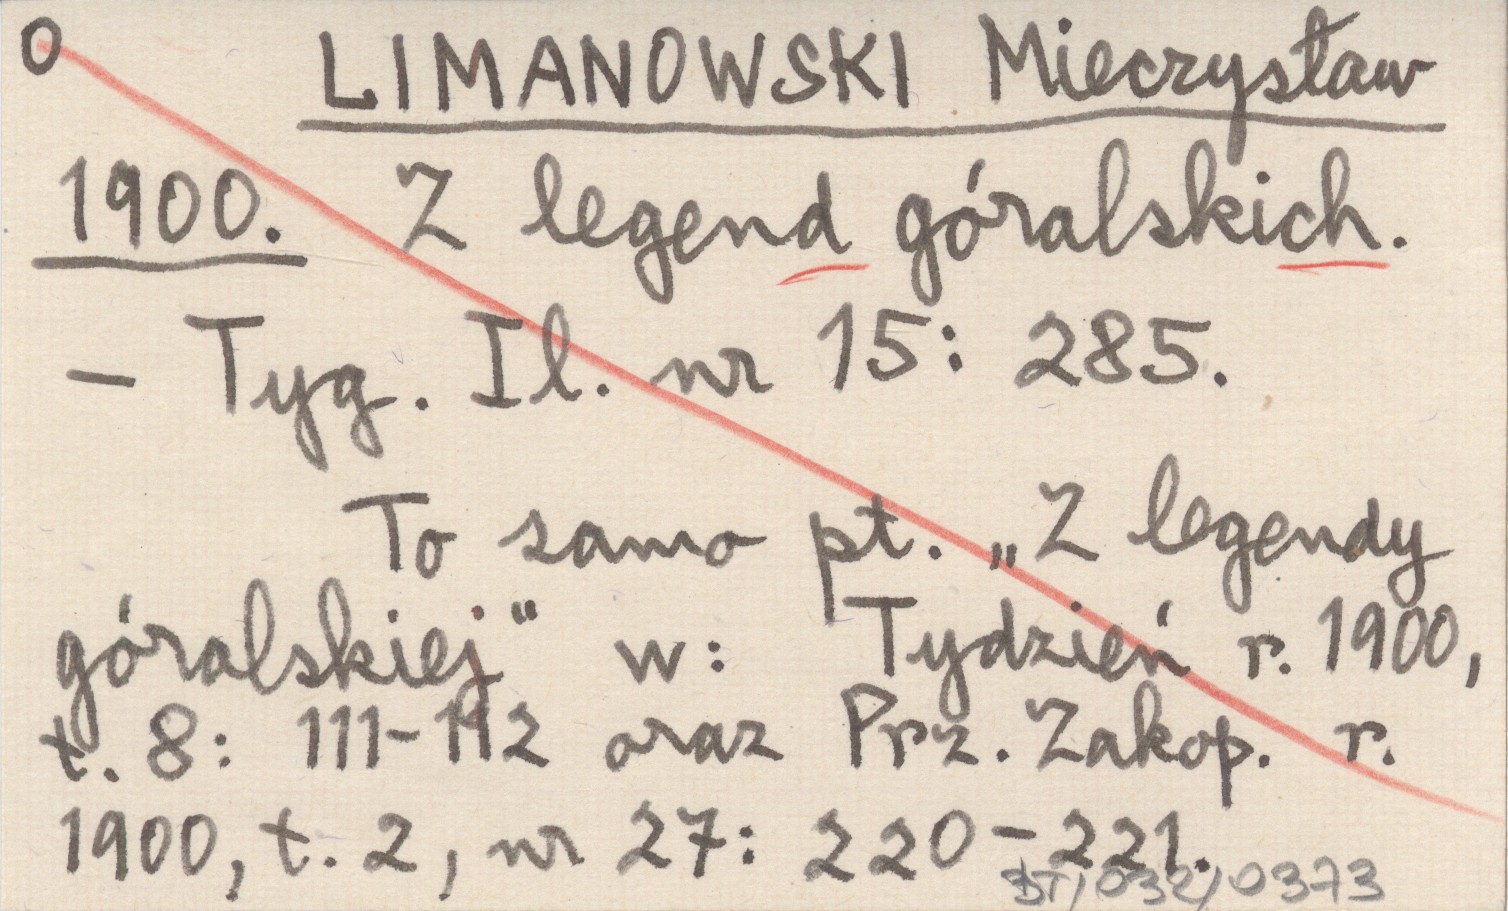 O LIMANOWSKI Mieczysław
1900. Z legend góralskich.
- Tyg. Il. nr 15: 285.
To samo pt. „Z legendy
góralskiej" w: Tydzień r. 1900,
t. 8: 111-112 oraz Prz. Zakop. r.
1900, t. 2, nr 27: 220-221.
BT/032/0373